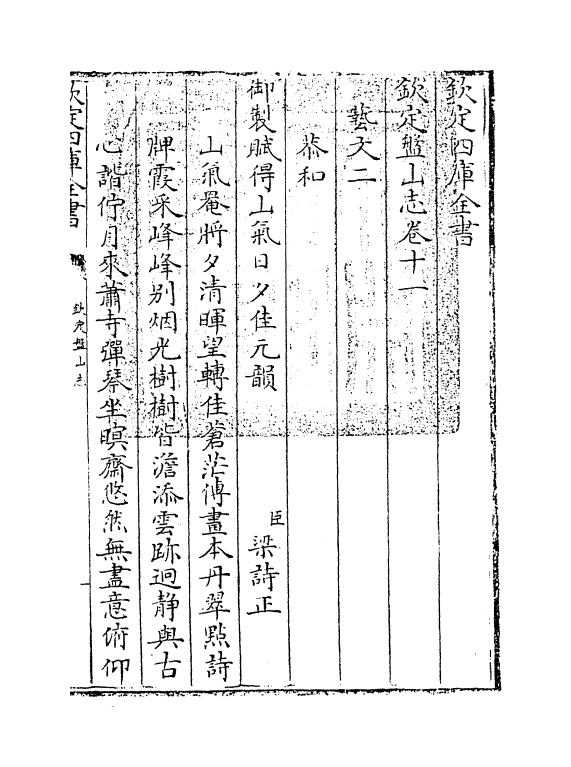 欽定四庫全書
欽定盤山志卷十一
藝文二
恭和
御製賦得山氣日夕佳元韻
臣梁詩正
山氣菴將夕清暉望轉佳蒼茫傅畫本丹翠點詩
牌霞采峰峰别烟光樹樹皆澹添雲跡迥静與古
心諧佇月來蕭寺彈琴坐暝齋悠然無盡意俯仰
欽定四庫全書
欽定盤山志